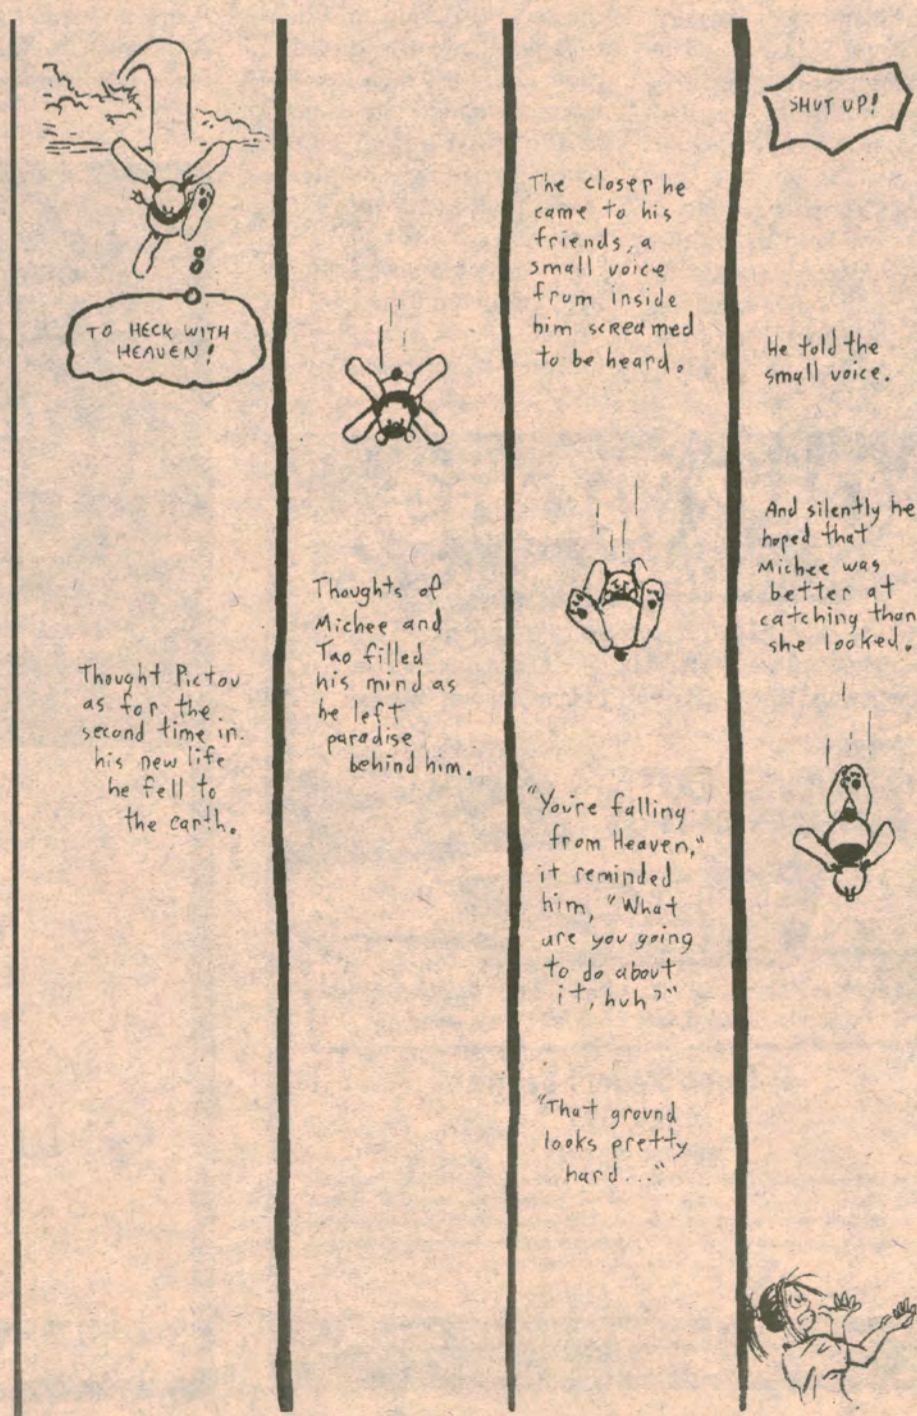 TO HECK WITH
HEAVEN!
Thought Pictou
as for the
second time in
his new life
he fell to
the earth.
Thoughts of
Michee and
Tao filled
his mind as
he left
paradise
behind him.
The closer he
came to his
friends, a
small voice
from inside
him screamed
to be heard.
"You're falling
from Heaven,"
it reminded
him, "What
are you going
to do about
it, huh?"
"That ground
looks pretty
hard..."
SHUT UP!
He told the
small voice.
And silently he
hoped that
Michee was
better at
catching than
she looked.